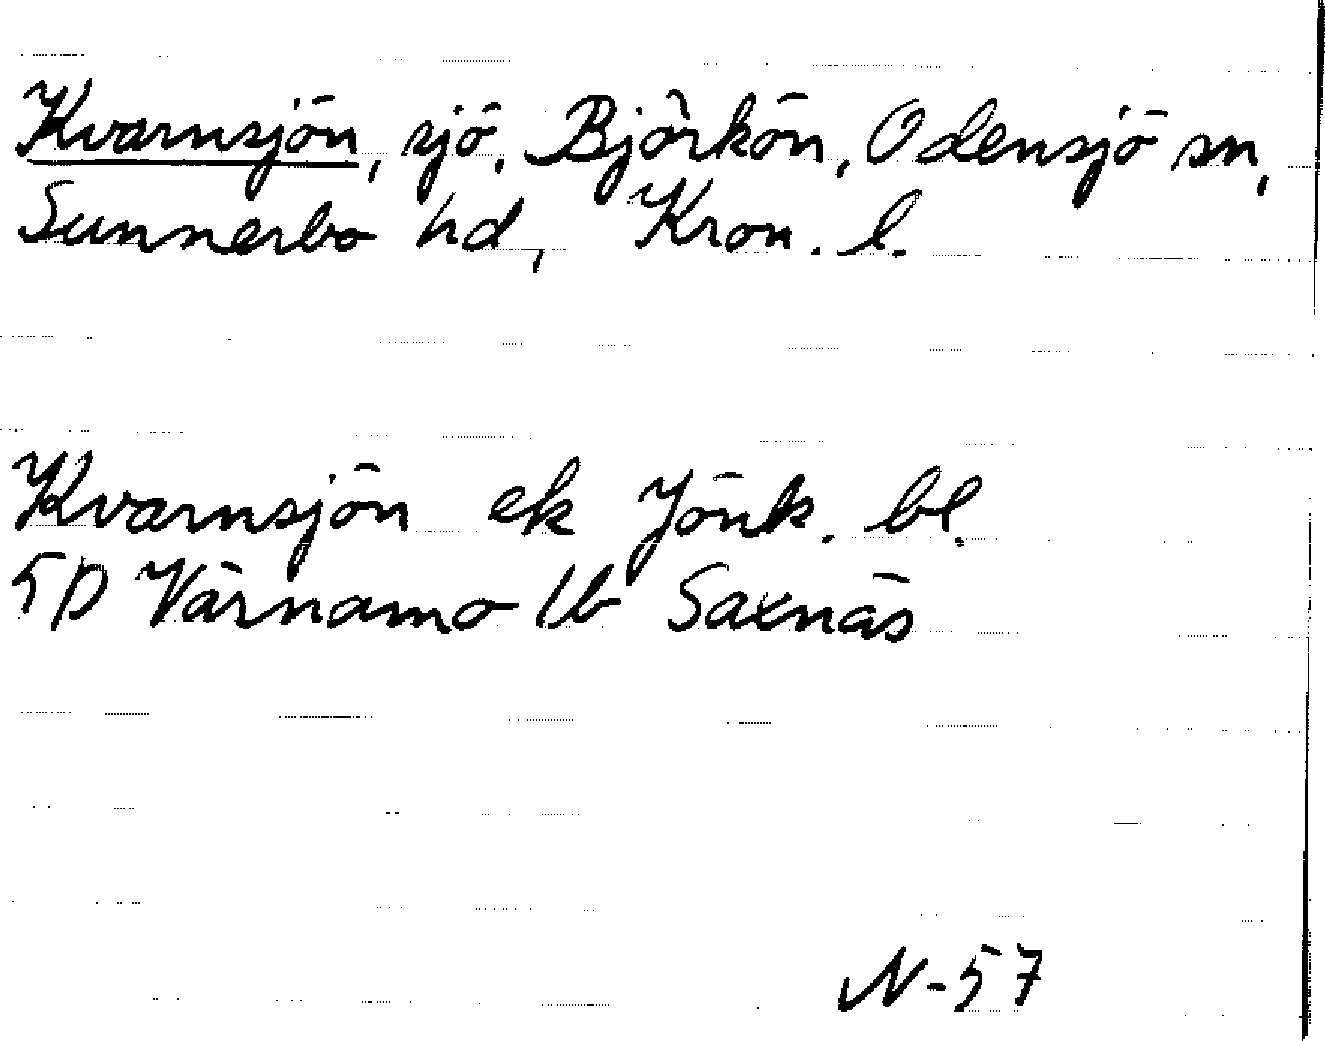 Kvarnsjön, sjö, Björkön, Odensjö sn,
Sunnerbo hd, Kron. l.
Kvarnsjön ek Jönk. bl.
5D Värnamo 1b Saxnäs
N-57